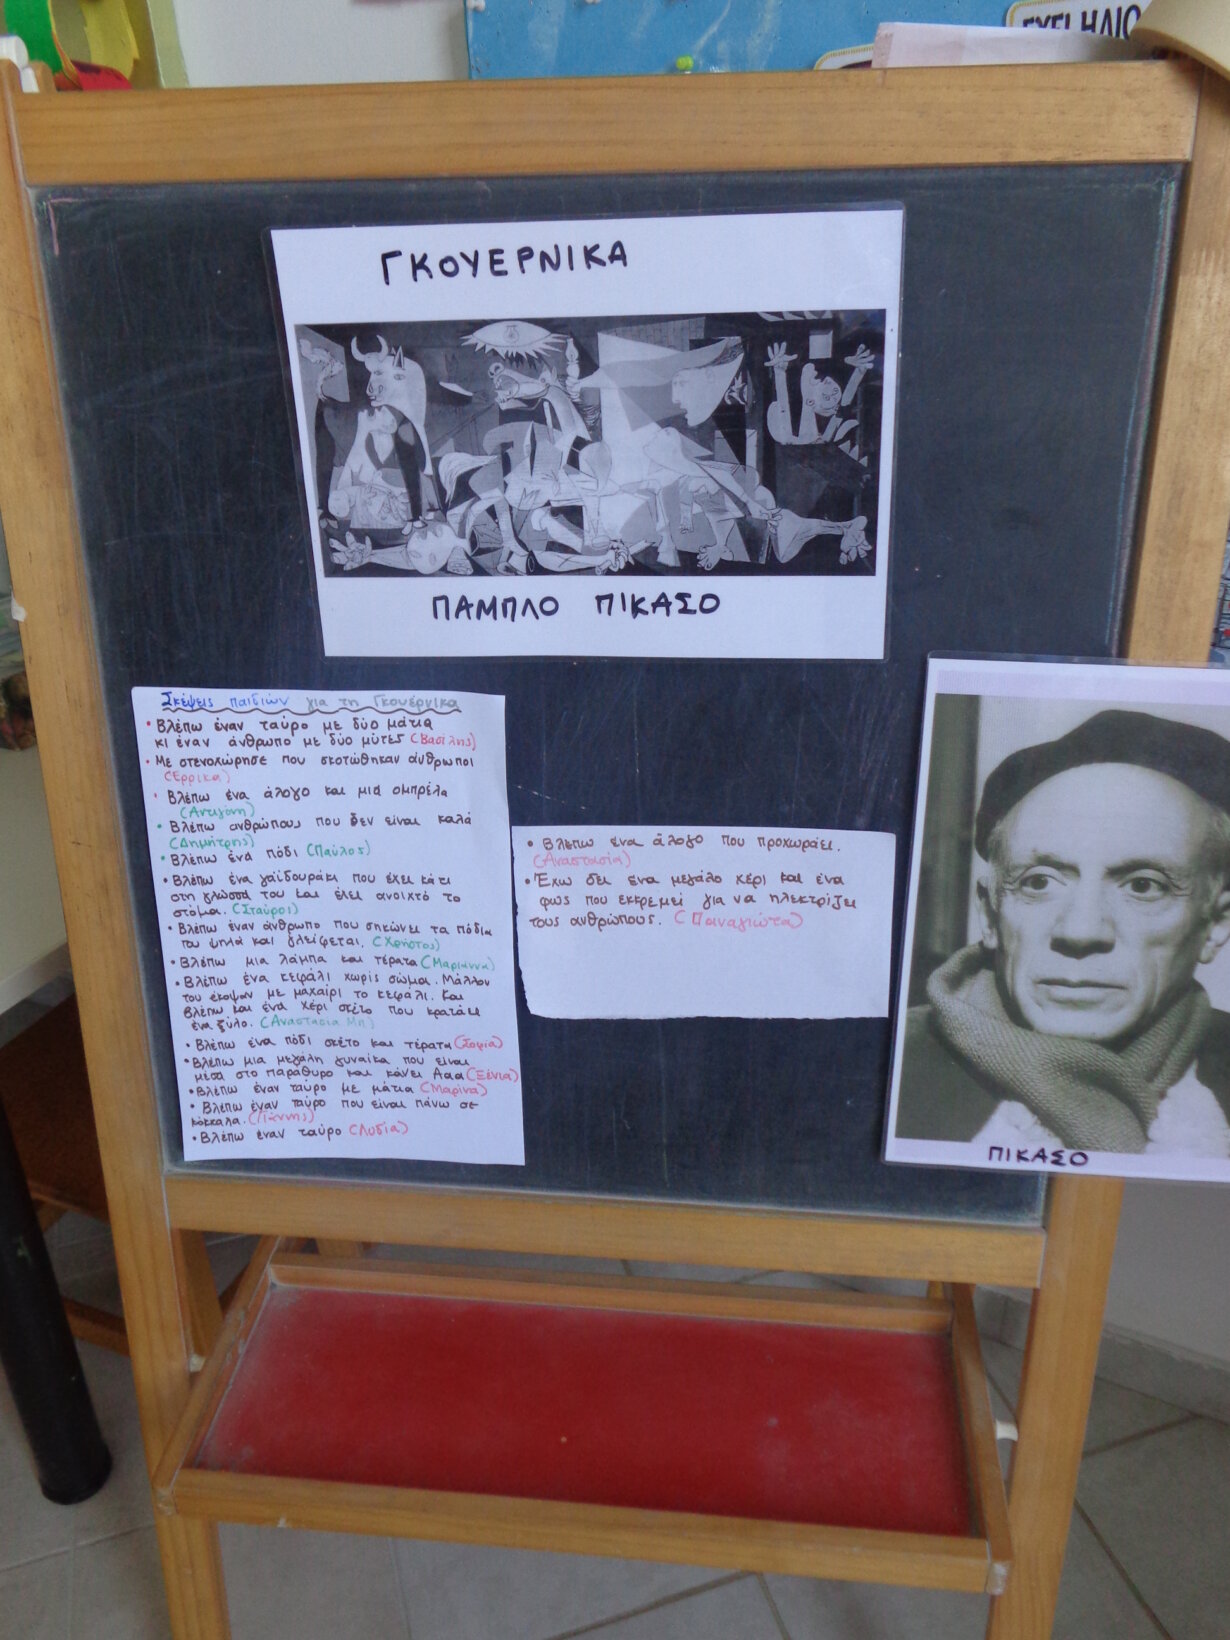 ΕΧΕΙ ΗΛΙΟ
ΓΚΟΥΕΡΝΙΚΑ
ΠΑΜΠΛΟ ΠΙΚΑΣΟ
Σκέψεις παιδιών για τη Γκουέρνικα
• Βλέπω έναν ταύρο με δύο μάτια
κι έναν άνθρωπο με δύο μύτες (Βασίλης)
• Με στενοχώρησε που σκοτώθηκαν άνθρωποι
(Ερρικα)
• Βλέπω ένα άλογο και μια ομπρέλα
(Αντιγόνη)
• Βλέπω ανθρώπους που δεν είναι καλά
(Δημήτρης)
• Βλέπω ένα πόδι (Παύλος)
• Βλέπω ένα γαϊδουράκι που έχει κάτι
στη γλώσσα του και έχει ανοιχτό το
στόμα. (Σταύρος)
• Βλέπω έναν άνθρωπο που σηκώνει τα πόδια
του ψηλά και γλείφεται. (Χρήστος)
• Βλέπω μια λάμπα και τέρατα (Μαριάννα)
• Βλέπω ένα κεφάλι χωρίς σώμα. Μάλλον
του έκοψαν με μαχαίρι το κεφάλι. Και
βλέπω και ένα χέρι σκέτο που κρατάει
ένα ξύλο. (Αναστασία Μπ)
• Βλέπω ένα πόδι σκέτο και τέρατα (Σοφία)
• Βλέπω μια μεγάλη γυναίκα που είναι
μέσα στο παράθυρο και κάνει Ααα (Ξένια)
• Βλέπω έναν ταύρο με μάτια (Μαρίνα)
• Βλέπω έναν ταύρο που είναι πάνω σε
κόκκαλα. (Γιάννης)
• Βλέπω έναν ταύρο (Λυδία)
• Βλέπω ένα άλογο που προχωράει.
(Αναστασία)
• Έχω δει ένα μεγάλο χέρι και ένα
φως που εκκρεμεί για να ηλεκτρίζει
τους ανθρώπους. (Παναγιώτα)
ΠΙΚΑΣΟ